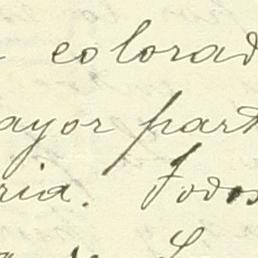 colorad
ayor part
ria. Todos